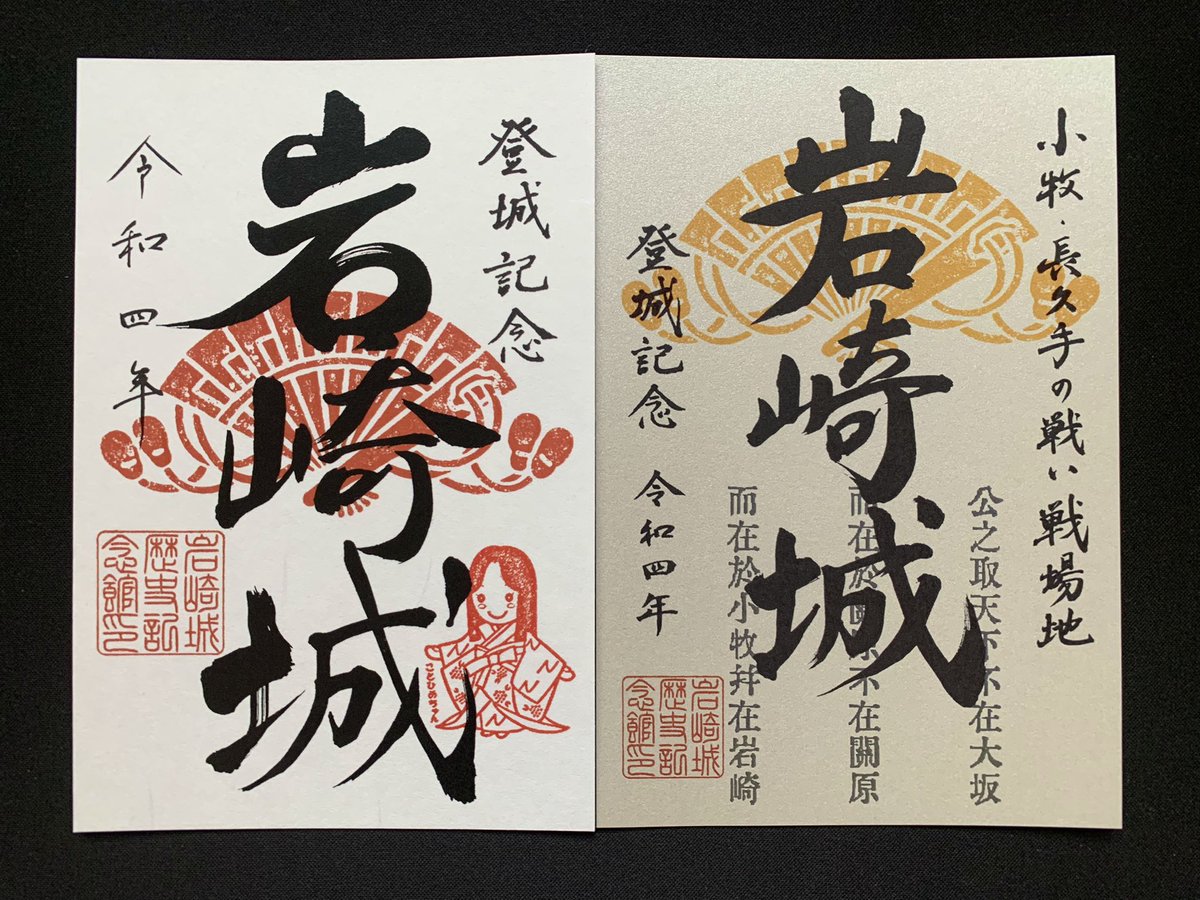 登城記念
岩崎城
令和四年
岩崎城
歴史記
念館印
ことひめちゃん
小牧・長久手の戦い戦場地
岩崎城
登城記念 令和四年
公之取天下不在大坂
而在於關原不在關原
而在於小牧幷在岩崎
岩崎城
歴史記
念館印